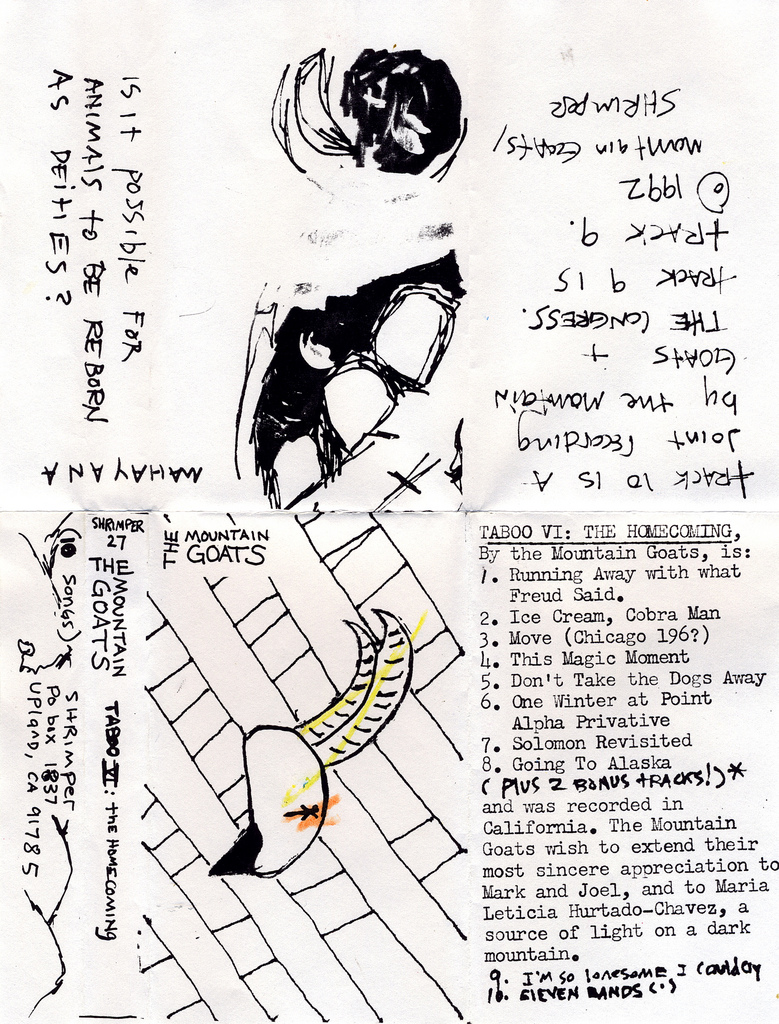 IS IT POSSIBLE FOR
ANIMALS TO BE REBORN
AS DEITIES?
MAHAYANA
TRACK 10 IS A
JOINT RECORDING
by the MOUNTAIN
GOATS +
THE CONGRESS.
TRACK 9 IS
TRACK 9.
© 1992
MOUNTAIN GOATS/
SHRIMPER
(10 SONGS)
SHRIMPER
PO BOX 1837
UPLAND, CA 91785
SHRIMPER
27
THE MOUNTAIN
GOATS
TABOO VI: THE HOMECOMING
THE MOUNTAIN
GOATS
TABOO VI: THE HOMECOMING,
By the Mountain Goats, is:
1. Running Away with what
Freud Said.
2. Ice Cream, Cobra Man
3. Move (Chicago 196?)
4. This Magic Moment
5. Don't Take the Dogs Away
6. One Winter at Point
Alpha Privative
7. Solomon Revisited
8. Going To Alaska
(PLUS 2 BONUS TRACKS!)*
and was recorded in
California. The Mountain
Goats wish to extend their
most sincere appreciation to
Mark and Joel, and to Maria
Leticia Hurtado-Chavez, a
source of light on a dark
mountain.
9. I'M SO LONESOME I COULD CRY
10. ELEVEN BANDS (.)